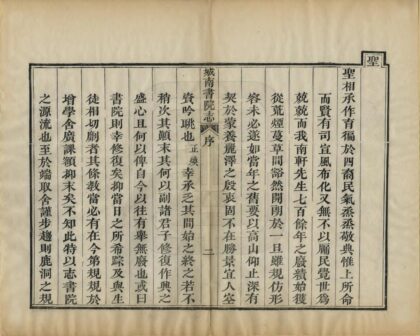 聖
聖相承作育徧於四裔民氣烝烝敬典惟上所命
而賢有司宣風布化又無不以牖民覺世為
兢兢而我南軒先生七百餘年之廢績始獲
從荒煙蔓草間豁然開朗於一旦雖規仿形
容未必遂如當年之舊要以高山仰止深有
契於蒙養麗澤之殷衷固不在勝景宜人室
城南書院志 序 二
資吟眺也正煥幸承乏其間始之終之若不
稍次其顛末其何以副諸君子修復作興之
盛心且何以俾自今以往有舉無廢也或曰
書院則幸修復矣抑當日之所希蹤及與生
徒相切劘者其條教當必有在今第規規於
增學舍廣課額抑末矣不知此特以志書院
之源流也至於端取舍謹步趨則鹿洞之規